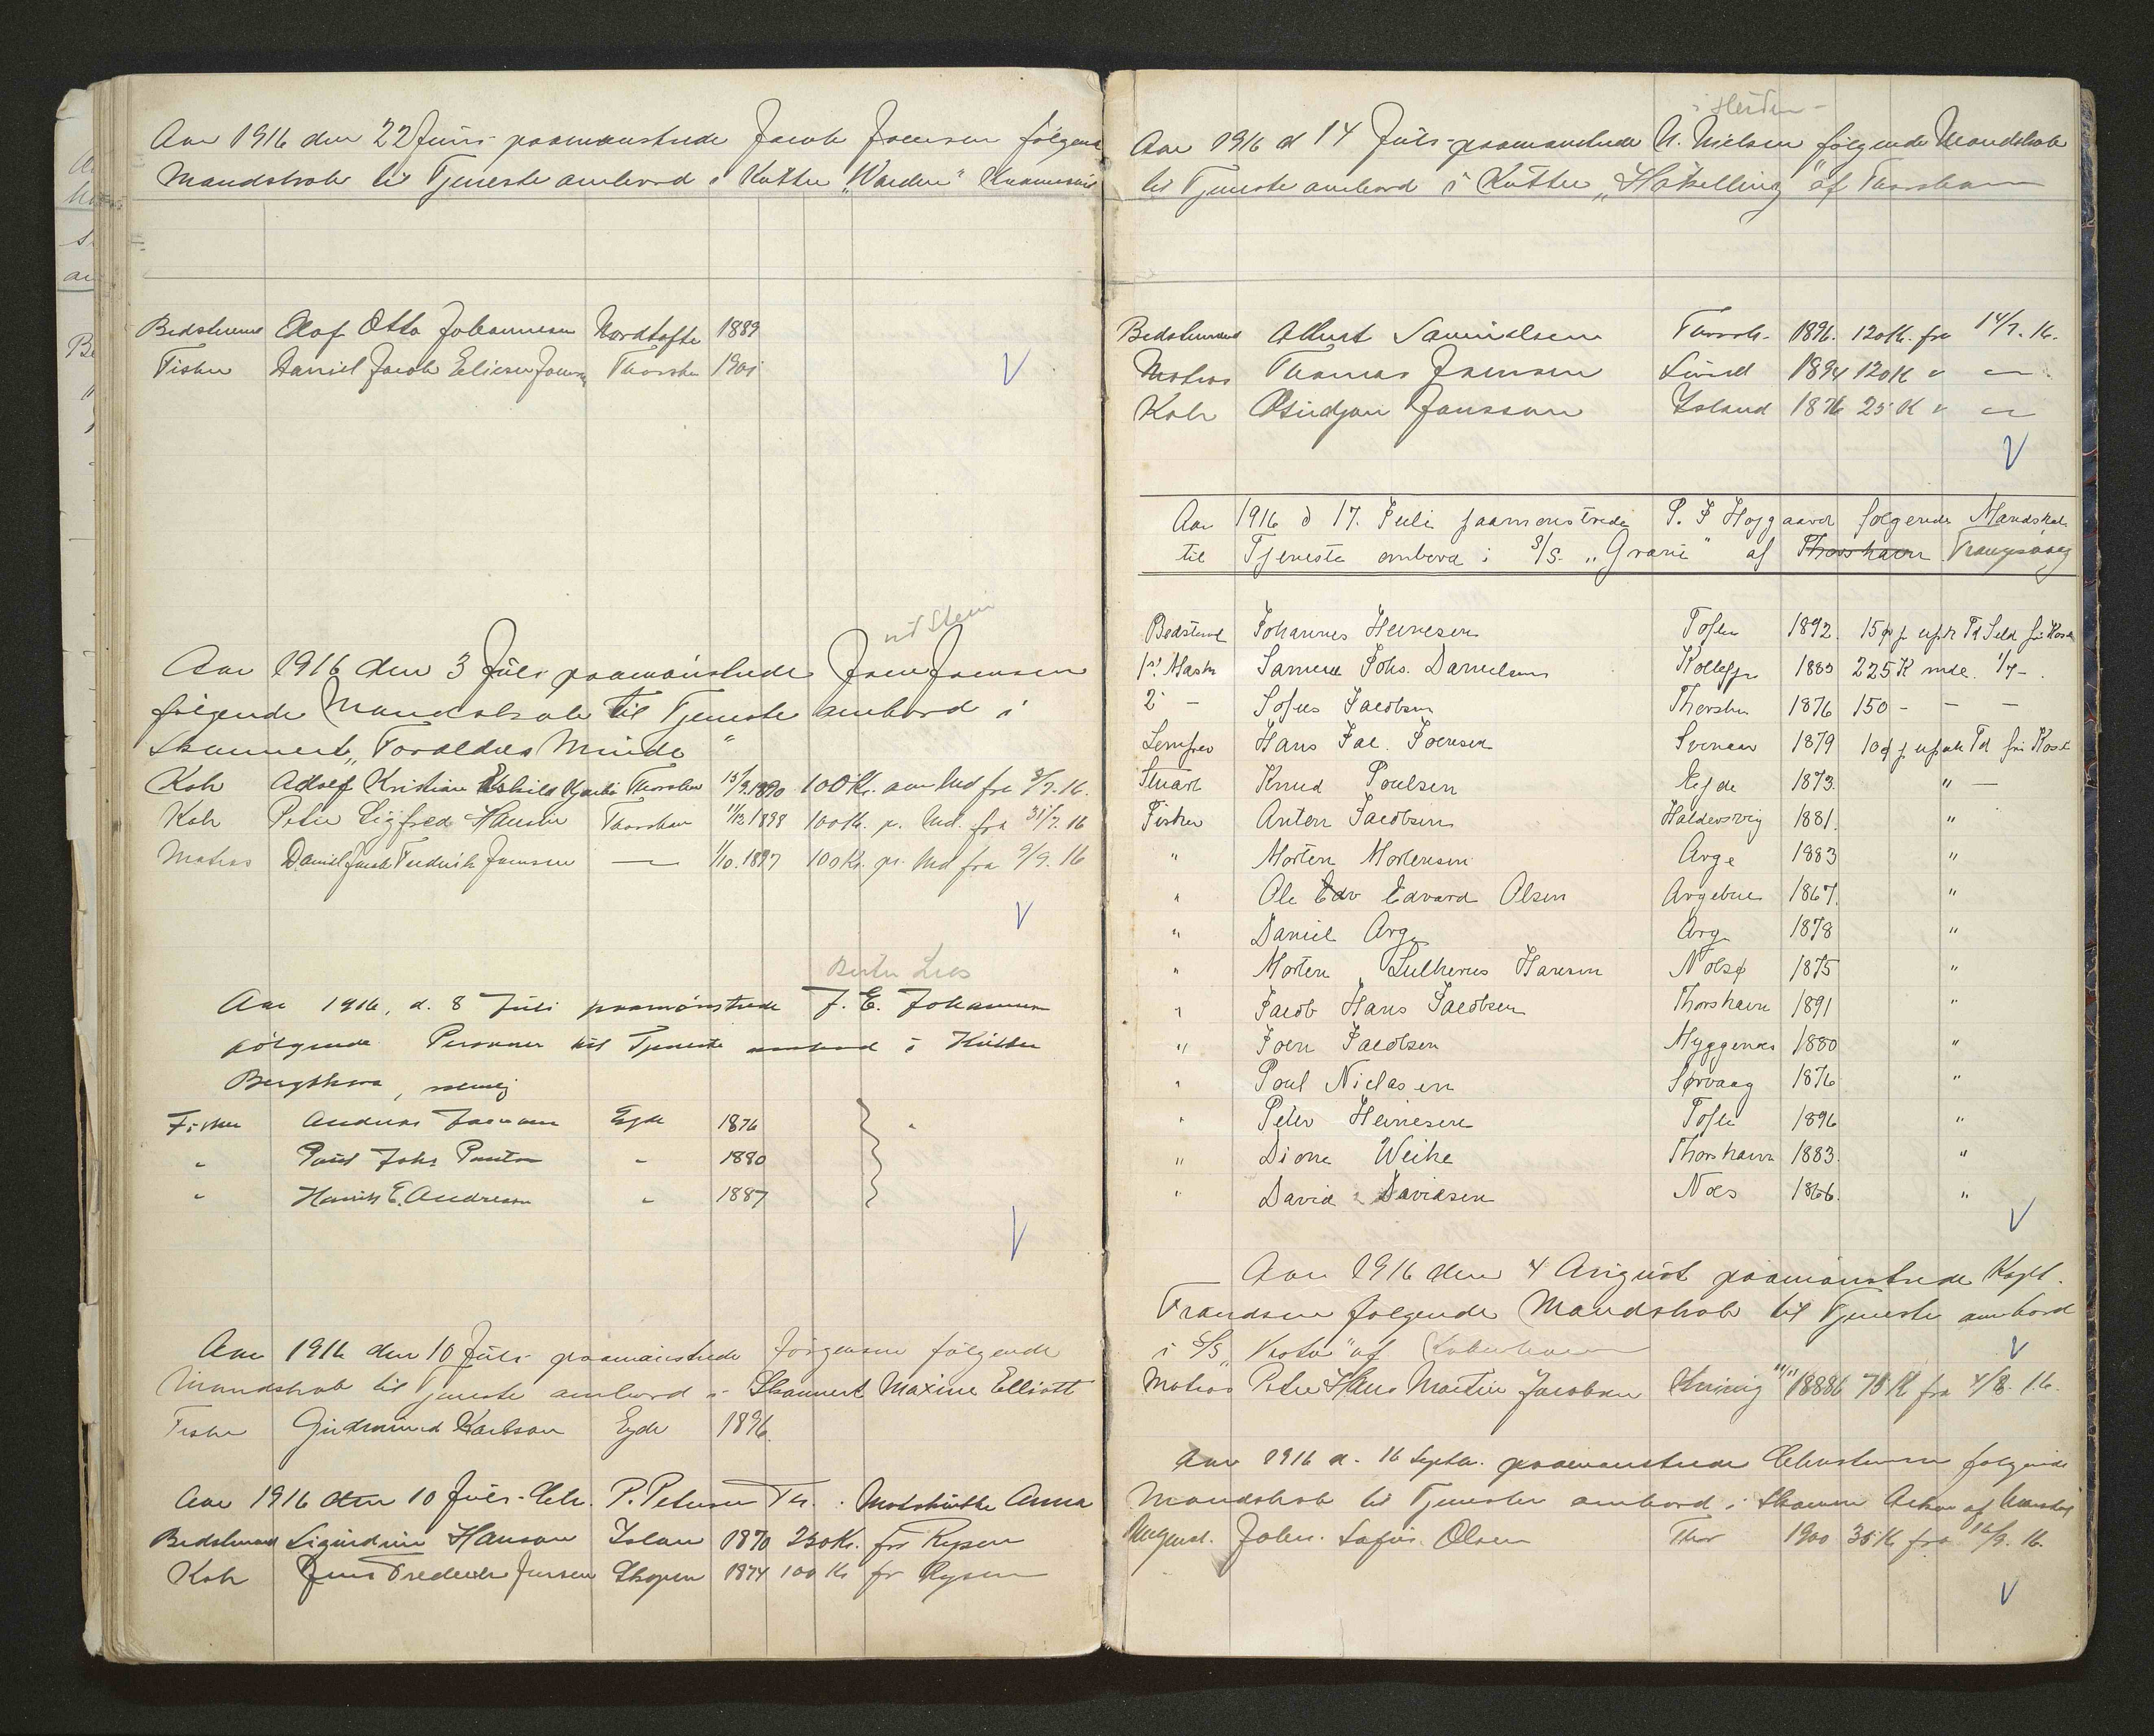 Aar 1916 den 22 Juni paamønstrede Jacob Joensen følgende
Mandskab til Tjeneste ombord i Kutter „Warden"
Bedstemand Olaf Otto Johannesen Nordtofte 1889
Fisker Daniel Jacob Elieser Joensen Thorshn 1901
Aar 1916 den 3 Juli paamønstrede Joen Joensen
følgende Mandskab til Tjeneste ombord i
Skonnert „Forældres Minde"
Kok Adolf Kristian Eskild Thorshn 15/9.1890 100 Kr. om Md fra 3/7.16.
Kok Peter Sigfred Hansen Thorshavn 11/12 1898 100 Kr. p. Md. fra 31/7.16
Matros Daniel Jacob Frederik Joensen — 1/10.1897 100 Kr. pr. Md fra 9/9.16
Aar 1916, d. 8 Juli paamønstrede J. E. Johannesen
følgende Personer til Tjeneste ombord i Kutter
Bergthora, nemlig
Fisker Andreas Joensen Ejde 1876
" Poul Johs Poulsen " 1880
" Henrik E. Andreasen " 1887
Aar 1916 den 10 Juli paamønstrede Jørgensen følgende
Mandskab til Tjeneste ombord i Skonnert Maxine Elliott
Fisker Gudmund Karlsson Ejde 1896.
Aar 1916 den 10 Juli P. Petersen Motorkutter Anna
Bedstemand Sigurdur Hanson Islan 1870 250 Kr. for Rejsen
Kok Jens Frederik Jensen Skopen 1874 100 Kr for Rejsen
Aar 1916 d 14 Juli paamønstrede N. Nielsen følgende Mandskab
til Tjeneste ombord i Kutter „Håkelling" af Thorshavn
Bedstemand Albert Samuelsen Thorsh. 1896. 120 Kr. fra 14/7.16.
Matros Thomas Joensen Sund 1894 120 K " —
Kok Jonsson Island 1876 25 K " —
Aar 1916 d 17. Juli paamønstrede P. J Højgaard følgende Mandskab
til Tjeneste ombord i S/S. „Grani" af Thorshavn Trangisvaag
Bedstemd Johannes Heinesen Tofte 1892. 15 Td Sild fri Kost
1st Mastr Samuel Johs. Danielsen Kollefjr 1883 225 K mdl. 1/7 -
2 - Sofus Jacobsen Thorshn 1876 150 - - -
Hans Jac. Joensen 1879 10 Td fri Kost
Stuart Knud Poulsen Ejde 1873. " —
Fisker Anton Jacobsen Haldersvig 1881. "
" Morten Mortensen Arge 1883 "
" Ole Edv Edvard Olsen Argebue 1867. "
" Daniel Arge Arge 1878 "
" Morten Lutherus Hansen Nolsø 1875 "
" Jacob Hans Jacobsen Thorshavn 1891 "
" Joen Jacobsen Myggenæs 1880 "
" Poul Niclasen Sørvaag 1876 "
" Peter Heinesen Tofte 1896 "
" Dione Weihe Thorshavn 1883. "
" David Davidsen Næs 1866. "
Aar 1916 den 4 August paamønstrede Kapt.
Frandsen følgende Mandskab til Tjeneste ombord
i S/S „Vesta" af København
Matros Peter Hans Martin Jacobsen 1886 75 K fra 4/8.16.
Aar 1916 d. 16 Septbr. paamønstrede Christensen følgende
Mandskab til Tjeneste ombord i Skonn. af Marstal
Ungmd. Johs. Sofus Olsen Thor 1900 35 K fra 16/9.16.